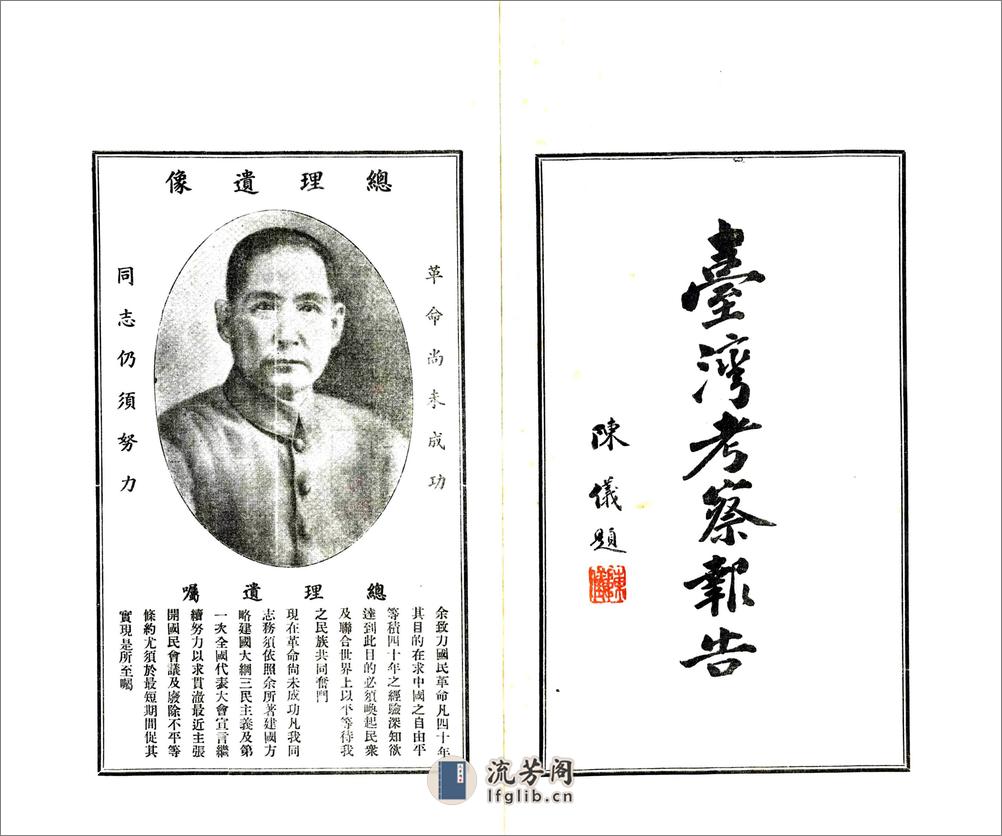 臺灣考察報告
陳儀題
陳儀
總理遺像
革命尚未成功
同志仍須努力
總理遺囑
余致力國民革命凡四十年
其目的在求中國之自由平
等積四十年之經驗深知欲
達到此目的必須喚起民衆
及聯合世界上以平等待我
之民族共同奮鬥
現在革命尚未成功凡我同
志務須依照余所著建國方
略建國大綱三民主義及第
一次全國代表大會宣言繼
續努力以求貫澈最近主張
開國民會議及廢除不平等
條約尤須於最短期間促其
實現是所至囑
流芳阁
lfglib.cn